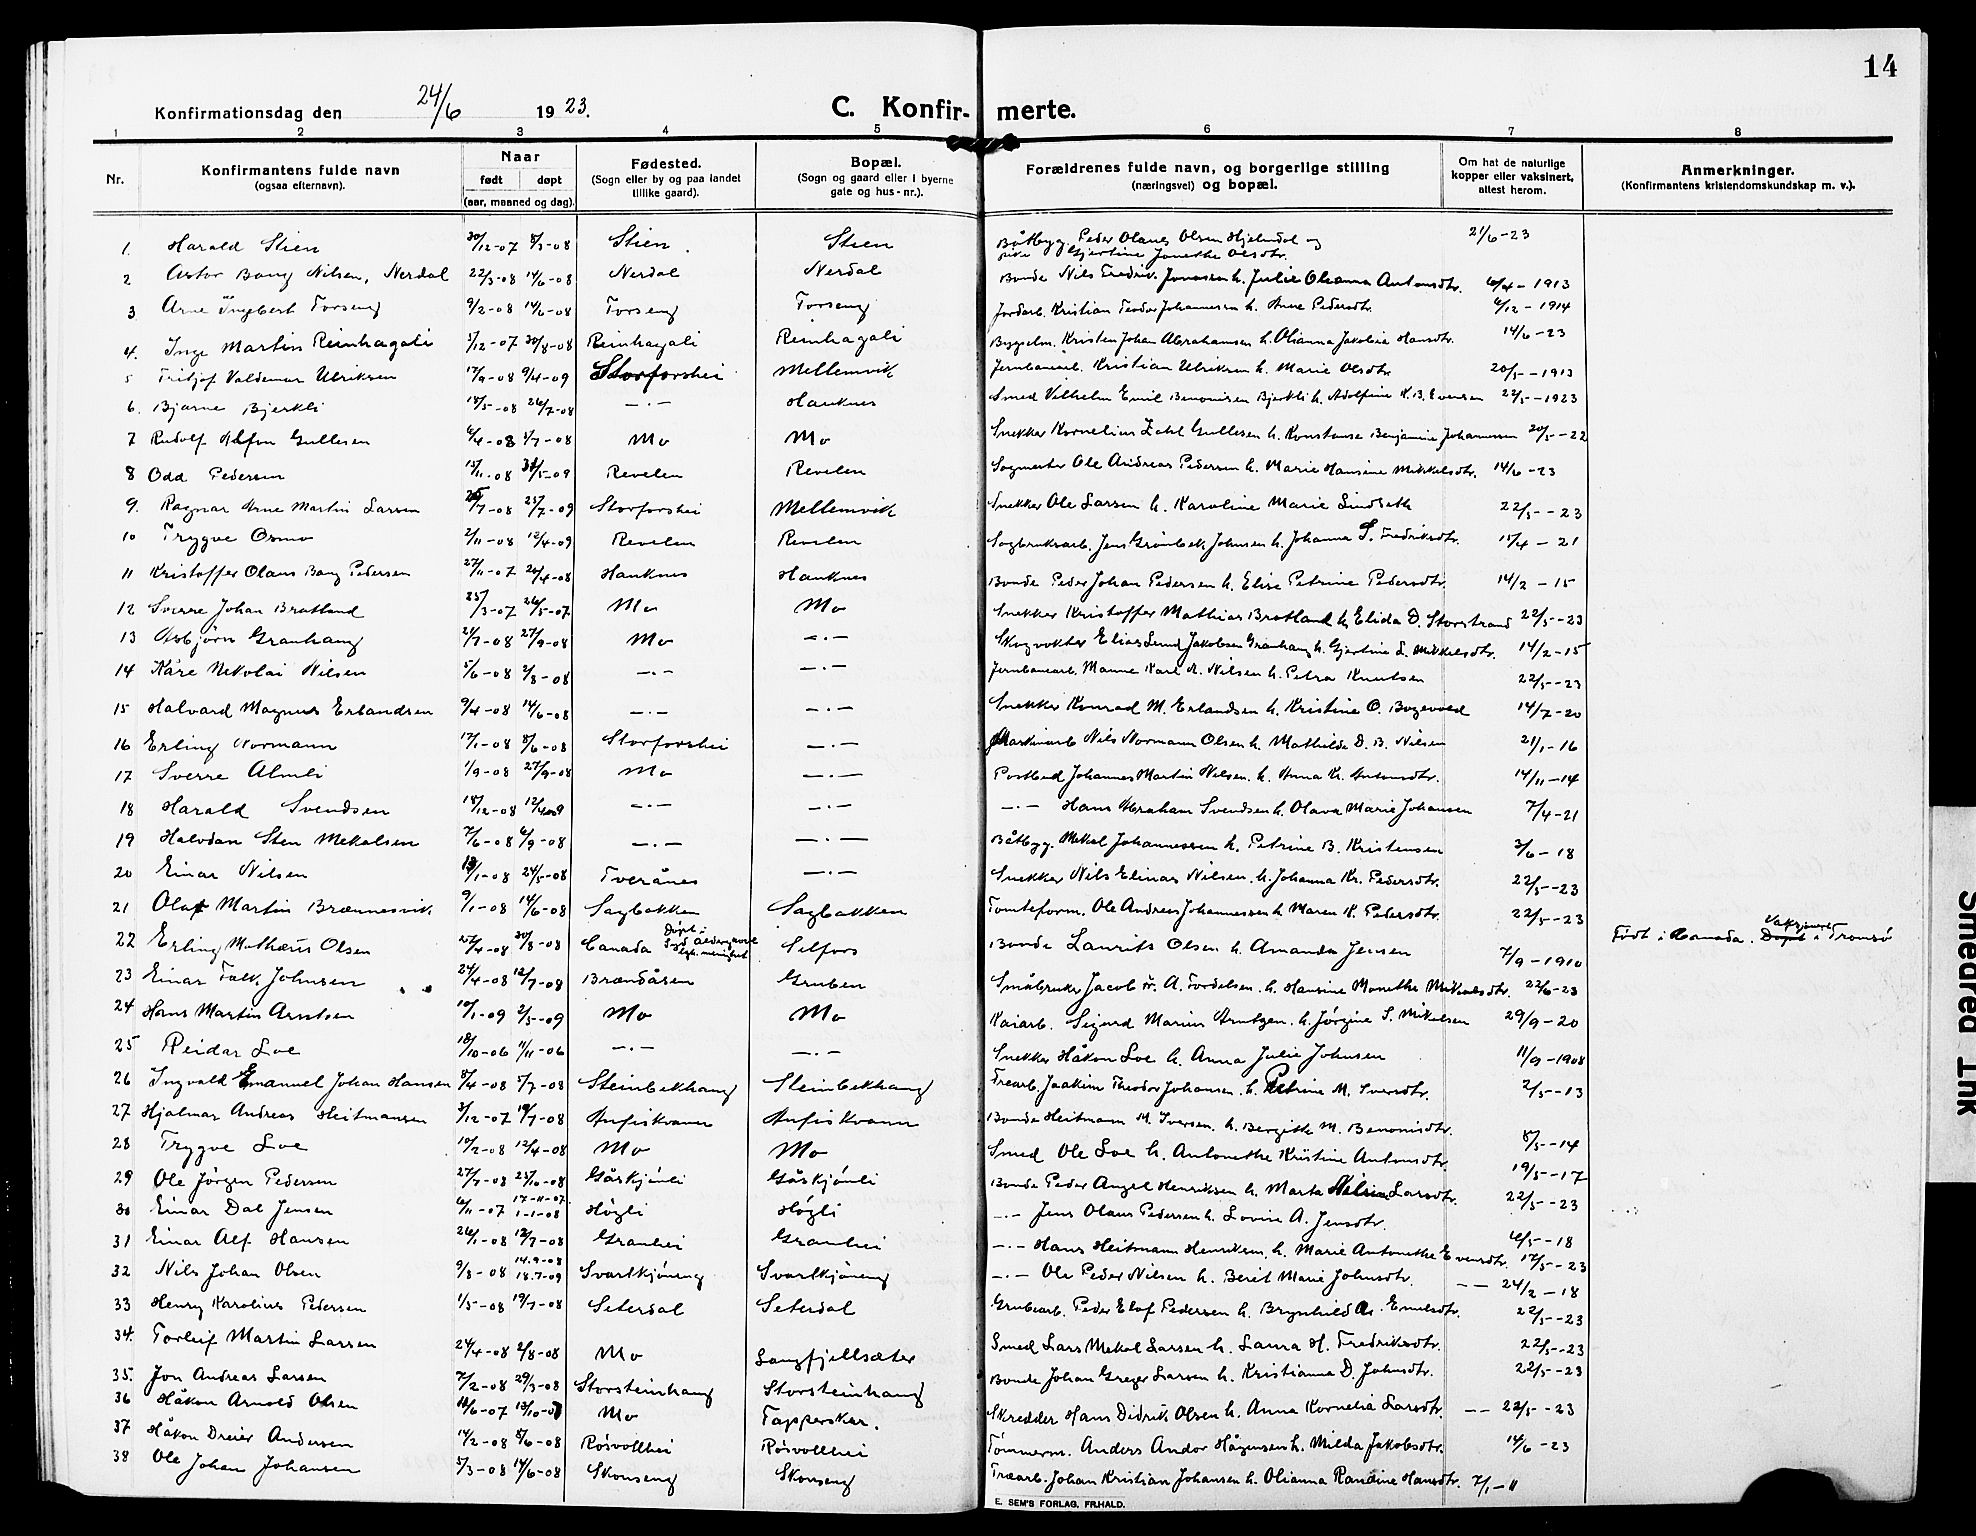 14
Konfirmationsdag den 24/6 1923. C. Konfir- merte.
1 2 3 4 5 6 7 8
Nr. Konfirmantens fulde navn (ogsaa efternavn). Naar født døpt (aar, maaned og dag). Fødested. (Sogn eller by og paa landet tillike gaard). Bopæl. (Sogn og gaard eller i byerne gate og hus-nr.). Forældrenes fulde navn, og borgerlige stilling (næringsvei) og bopæl. Om hat de naturlige kopper eller vaksinert, attest herom. Anmerkninger. (Konfirmantens kristendomskundskap m. v.).
1. Harald Stien 30/12-07 8/3-08 Stien. Stien Båtbygg. Peder Olaus Olsen Hjelmdal og 21/6-23
pike Gjertine Jonette Olsdtr.
2 Astor Bang Nilsen, Nerdal 22/3-08 14/6-08 Nerdal Nerdal Bonde Nils Fredrik Jonassen h. Julie Oleanna Antonsdtr. 6/4-1913
3 Arne Ingebert Forseng 9/2-08 14/6-08 Forseng Forseng Jordarb. Kristian Teodor Johannesen h. Anne Pedersdtr. 6/12-1914
4. Inge Martin Reinhagali 3/12-07 30/8-08 Reinhagali Reinhagali Byggelm. Kristen Johan Abrahamsen h. Olianna Jakobine Hansdtr. 14/6-23
5 Fritjof Valdemar Ulriksen 17/9-08 9/4-09 Storforshei Mellemvik Jernbanearb. Kristian Ulriksen h. Marie Olsdtr 20/5-1913
6. Bjarne Bjerkli 18/5-08 26/7-08 —.— Hauknes Smed Vilhelm Emil Benonisen Bjerkli h. Adolfine K. B. Evensen 22/5-1923
7 Rudolf Alfon Gullesen 6/4-08 5/7-08 Mo Mo Snekker Kornelius Zahl Gullesen h. Konstanse Benjamine Johannesen 20/5-22
8 Odd Pedersen 15/11-08 31/5-09 Revelen Revelen Sagmester Ole Andreas Pedersen h. Marie Hansine Mikkelsdtr. 14/6-23
9. Ragnar Arne Martin Larsen 25/7-08 25/7-09 Storforshei Mellemvik Snekker Ole Larsen h. Karoline Marie Lindseth 22/5-23
10 Trygve Osmo 2/11-08 12/4-09 Revelen Revelen Sagbruksarb. Jens Grønbek Johnsen h. Johanna S. Fredriksdtr. 15/4-21
11 Kristoffer Olaus Bang Pedersen 27/11-07 20/4-08 Hauknes Hauknes Bonde Peder Johan Pedersen h. Elise Petrine Pedersdtr. 14/2-15
12 Sverre Johan Bratland 25/3-07 26/5-07 Mo Mo Snekker Kristoffer Mathias Bratland h. Elida D. Storstrand 22/5-23
13 Asbjørn Granhaug 2/7-08 27/9-08 Mo —.— Skogvokter Elias Lund Jakobsen Granhaug h. Gjertine L. Mikkelsdtr. 14/2-15
14 Kåre Nikolai Nilsen 5/6-08 2/8-08 —.— —.— Jernbanearb. Manne Karl A. Nilsen h. Petra Knutsen 22/5-23
15 Halvard Magnus Erlandsen 9/4-08 14/6-08 —.— —.— Snekker Konrad M. Erlandsen h. Kristine O. Bogevold 14/7-20
16 Erling Normann 17/1-08 8/6-08 Storforshei —.— Maskinarb Nils Normann Olsen h. Mathilde D. B. Nilsen 21/1-16
17 Sverre Almli 1/9-08 27/9-08 Mo —.— Postbud Johannes Martin Nilsen. h. Anna K. Antonsdtr. 14/11-14
18 Harald Svendsen 18/12-08 12/4-09 —.— —.— —.— Hans Abraham Svendsen h. Olava Marie Johansen 7/4-21
19 Halvdan Sten Mekalsen 7/6-08 6/9-08 —.— —.— Båtbyg. Mekal Johannessen h. Petrine B. Kristensen 3/6-18
20 Einar Nilsen 13/1-08 24/5-08 Tverånes —.— Snekker Nils Elinas Nilsen. h. Johanna Kr. Pedersdtr. 22/5-23
21 Olaf Martin Brænnesvik 9/1-08 14/6-08 Sagbakken Sagbakken Tomteform. Ole Andreas Johannessen h. Maren K. Pedersdtr. 22/5-23
22 Erling Mathæus Olsen 27/4-08 30/8-08 Canada Døpt i Selfors Bonde Laurits Olsen h. Amanda Jensen 7/9-1910 Født i Canada. Vaksinert Døpt i Tromsø
23 Einar Falk. Johnsen 24/4-08 12/7-08 Brændåsen Gruben Småbruker Jacob A. Fordelsen. h. Hansine Monethe Mikalsdtr. 22/6-23
24 Hans Martin Arntsen 10/1-09 2/5-09 Mo Mo Kaiarb. Sigurd Marius Arntzen. h. Jørgine S. Mikelsen 29/9-20
25 Reidar Loe 18/10-06 11/11-06 —.— —.— Snekker Håkon Loe h. Anna Julie Johnsen 11/9-1908
26 Ingvald Emanuel Johan Hansen 8/4-08 5/7-08 Steinbekhaug Steinbekhaug Trearb. Joakim Theodor Johansen. h. Petrine M. Iversdtr. 2/5-13
27 Hjalmar Andreas Heitmansen 3/12-07 19/7-08 Aufiskvann Aufiskvann Bonde Heitmann M. Iversen. h. Bergitte M. Benonisdtr. 8/5-14
28 Trygve Loe 10/2-08 12/4-08 Mo Mo Smed Ole Loe h. Antonethe Kristine Antonsdtr. 19/5-17
29 Ole Jörgen Pedersen 27/7-08 25/10-08 Gåskjönli Gåskjönli Bonde Peder Angel Henriksen h. Marta Nilsine Larsdtr. 22/5-23
30 Einar Dal Jensen 6/11-07 17-11-07 1-1-08 Høgli Høgli —.— Jens Olaus Pedersen h. Lovise A. Jensdtr. 6/5-18
31 Einar Alf Hansen 26/1-08 12/7-08 Granhei Granhei —.— Hans Heitmann Henriksen. h. Marie Antonethe Evensdtr. 17/5-23
32 Nils Johan Olsen 9/8-08 14.9-08 18.7-09 Svartkjöneng Svartkjöneng —.— Ole Peder Nilsen h. Berit Marie Johnsdtr. —— 24/2-18
33 Henry Karolius Pedersen 1/5-08 19/7-08 Seterdal Seterdal Grubearb. Peder Elof Pedersen h. Brynhild A. Emilsdtr. 22/5-23
34. Torleif Martin Larsen 24/4-08 2/8-08 Mo Langfjellsæter Smed Lars Mekal Larsen h. Laura H. Fredriksdtr. 22/5-23
35. Jon Andreas Larsen 7/2-08 29/3-08 Storsteinhaug Storsteinhaug Bonde Johan Greger Larsen h. Kristianna D. Johnsdtr. 22/5-23
36 Håkon Arnold Olsen 16/6-07 13/10-07 Mo Tapperskar. Skredder Hans Didrik Olsen h. Anna Kornelia Larsdtr. —— 22/5-23
37 Håkon Dreier Andersen 14/2-08 8/6-08 Røsvollhei Røsvollhei Tømmerm. Anders Andor Hågensen h. Milda Jakobsdtr. 14/6-23
38 Ole Johan Johansen 5/3-08 14/6-08 Skonseng Skonseng Træarb. Johan Kristian Johansen h. Olianna Randine Hansdtr. 7/1-11
E. SEM'S FORLAG, FR.HALD.
Smedred Ink